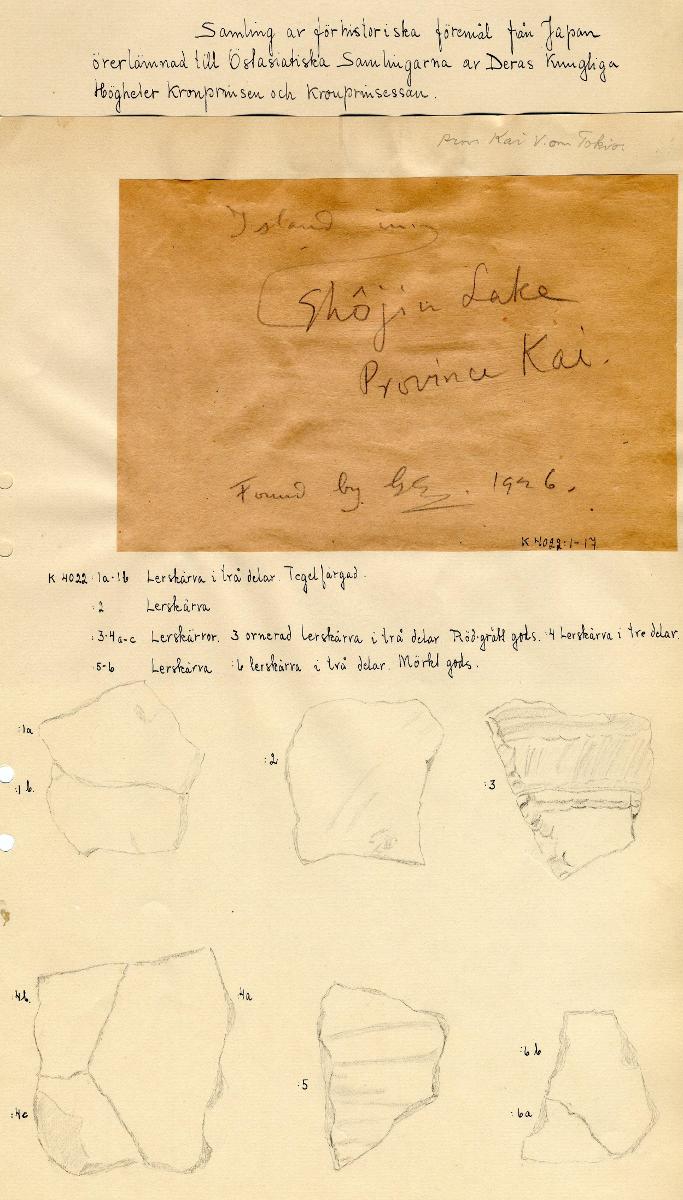 Samling av förhistoriska föremål från Japan
överlämnad till Östasiatiska Samlingarna av Deras Kungliga
Högheter Kronprinsen och Kronprinsessan.
prov Kai V. om Tokio
Island in
Shôjin Lake
Province Kai.
Found by 1926.
K 4022:1-17
K 4022 :1a-1b Lerskärva i två delar. Tegelfärgad.
:2 Lerskärva
:3-4a-c Lerskärvor. 3 ornerad lerskärva i två delar Röd-grått gods. :4 Lerskärva i tre delar.
:5-6 Lerskärva :6 lerskärva i två delar. Mörkt gods.
:1a
:1b.
:2
:3
:4b.
:4a
:4c
:5
:6b
:6a